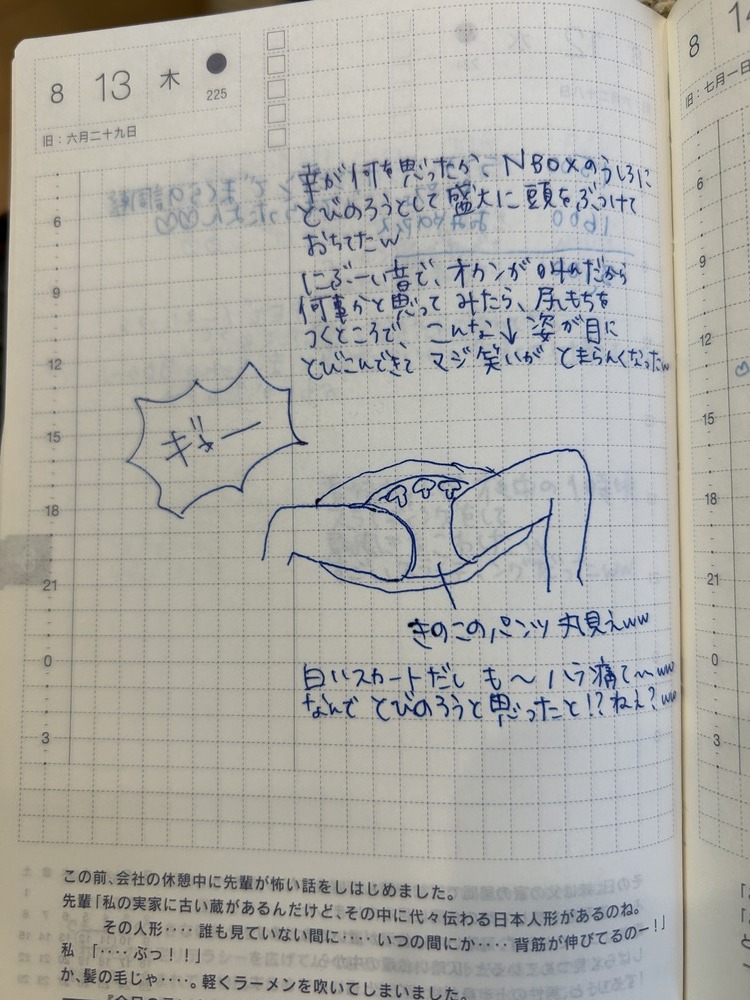 8 13 木
225
旧：六月二十九日
幸が何を思ったか NBOXのうしろに
とびのろうとして盛大に頭をぶつけて
おちてたw
にぶーい音で、オカンが叫んだから
何事かと思って みたら、尻もちを
つくところで、こんな↓姿が目に
とびこんできて マジ笑いが とまらんくなったw
ギャー
きのこのパンツ 丸見えww
白いスカートだし も〜ハラ痛て〜ww
なんで とびのろうと思ったと!?ねぇ?ww
6
9
12
15
18
21
0
3
この前、会社の休憩中に先輩が怖い話をしはじめました。
先輩「私の実家に古い蔵があるんだけど、その中に代々伝わる日本人形があるのね。
その人形‥‥誰も見ていない間に‥‥いつの間にか‥‥背筋が伸びてるのー！」
私 「‥‥ぶっ！！」
か、髪の毛じゃ‥‥。軽くラーメンを吹いてしまいました。
8
旧：七月一日
6
9
12
15
18
21
0
3